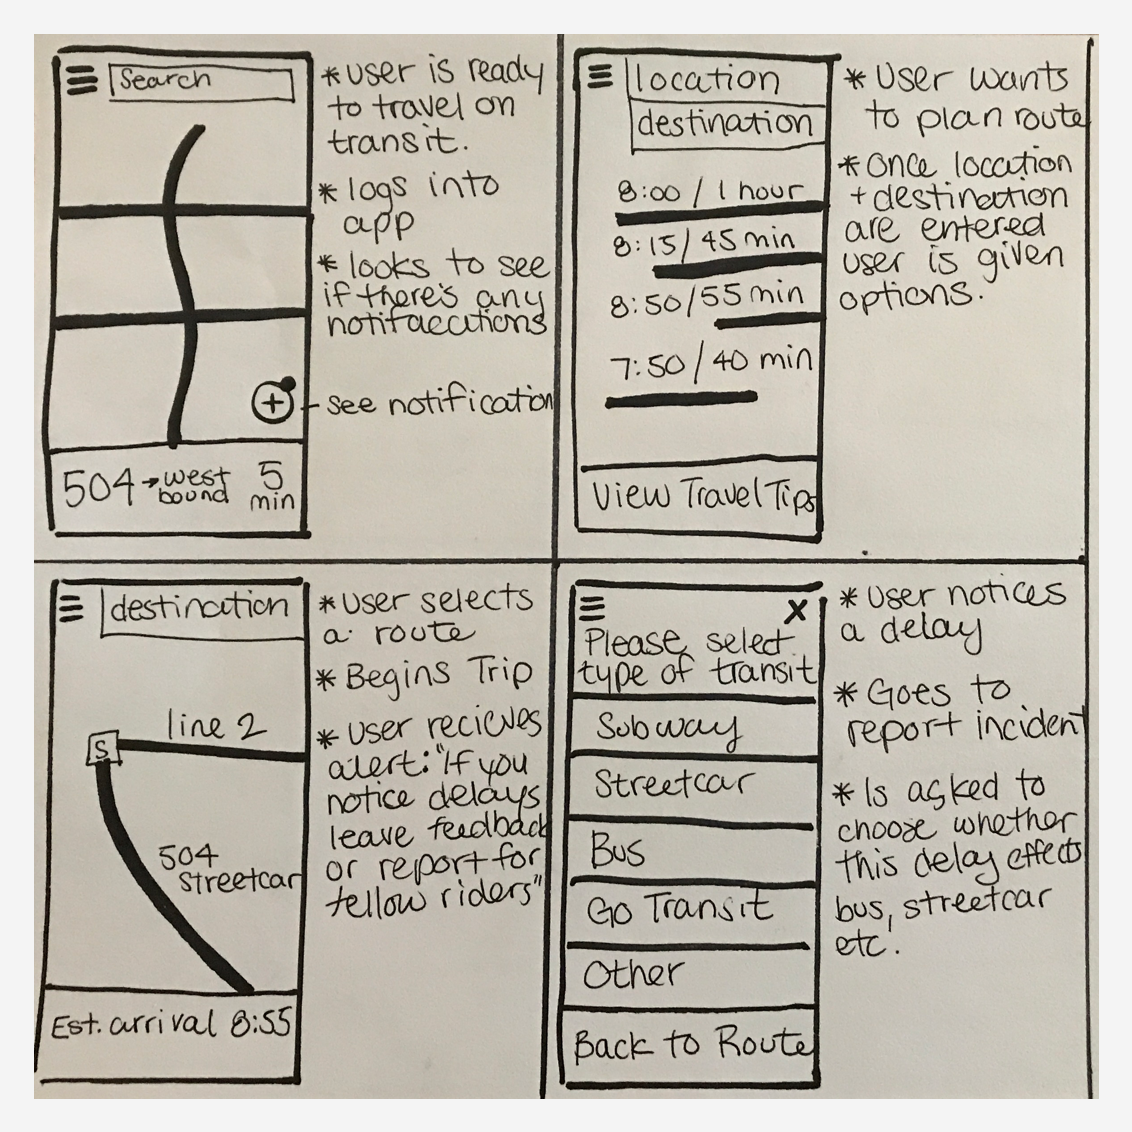 Search
504→west bound 5 min
*user is ready
to travel on
transit.
* logs into
app
* looks to see
if there's any
notifaecations
- see notification
location
destination
8:00 / 1 hour
8:15/ 45 min
8:50/55 min
7:50/40 min
View Travel Tips
* User wants
to plan route
*Once location
+ destination
are entered
user is given
options.
destination
line 2
S
504
Streetcar
Est. arrival 8:55
*user selects
a route
* Begins Trip
* user recieves
alert: "If you
notice delays
leave feedback
or report for
fellow riders"
X
Please select
type of transit
Subway
Streetcar
Bus
Go Transit
Other
Back to Route
* User notices
a delay
* Goes to
report incident
* Is asked to
choose whether
this delay effects
bus, streetcar
etc.